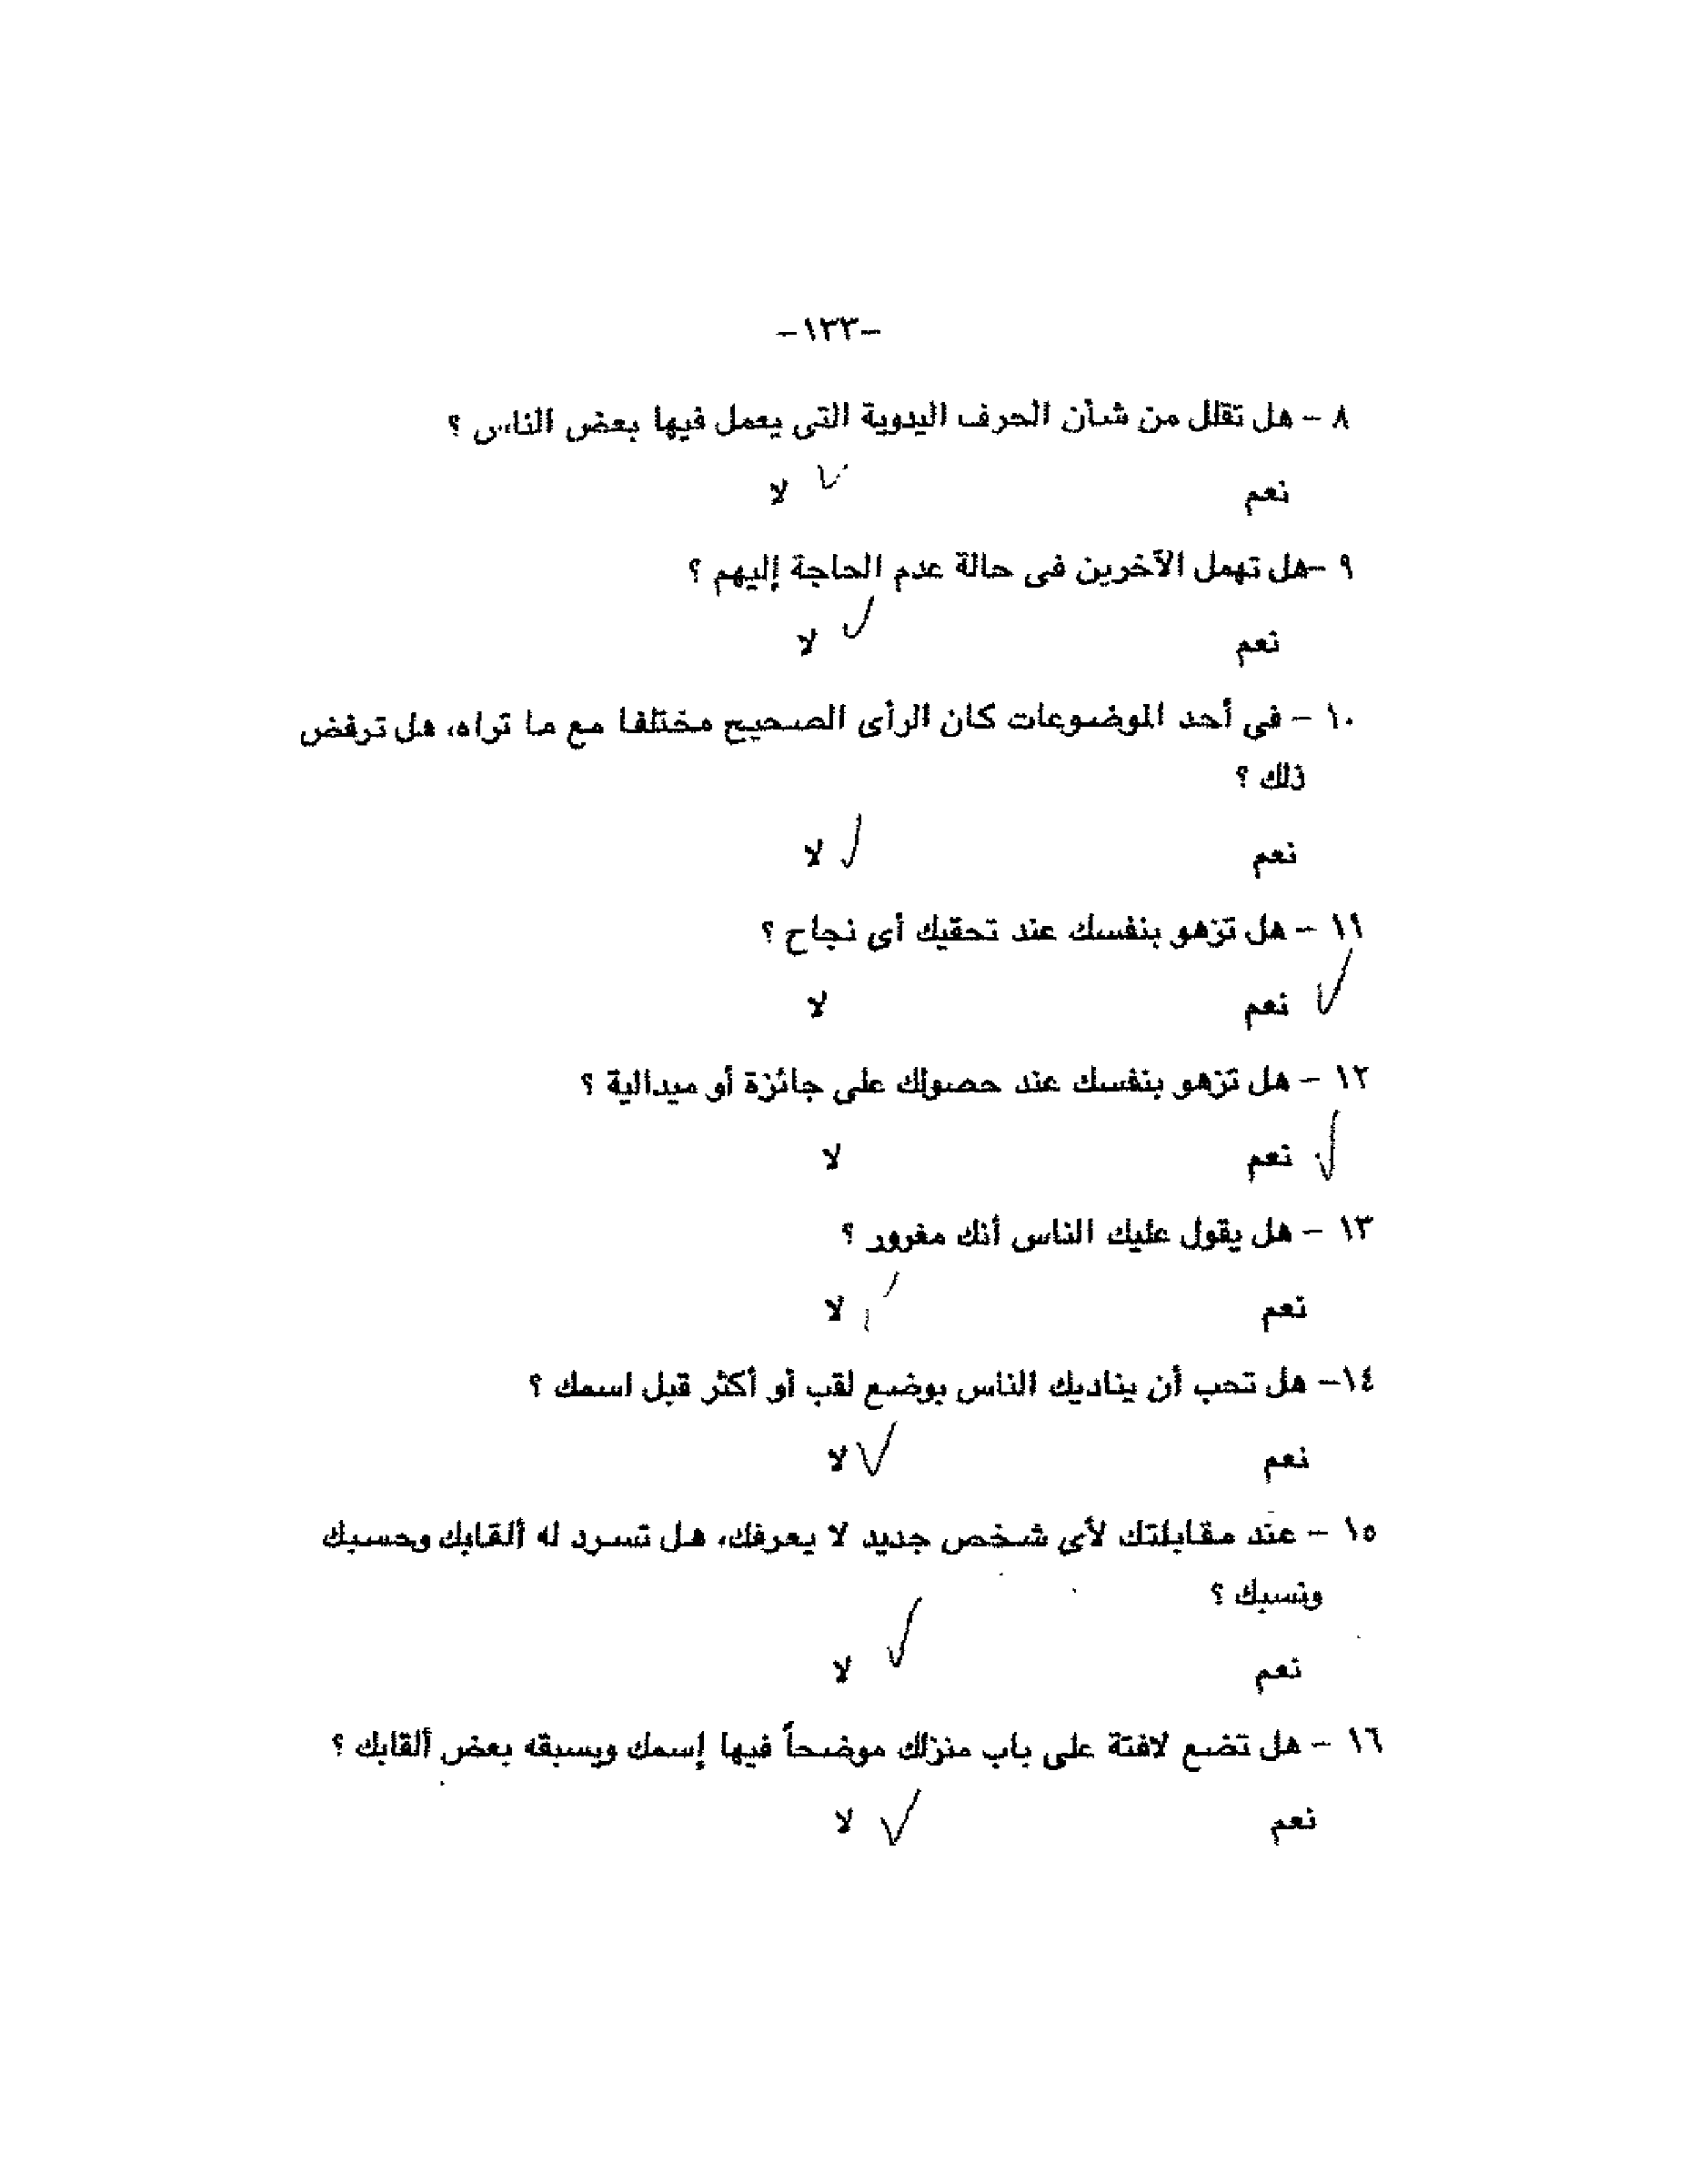 -١٣٣-
٨ - هل تقلل من شأن الحرف اليدوية التى يعمل فيها بعض الناس ؟
نعم لا
٩ -هل تهمل الآخرين فى حالة عدم الحاجة إليهم ؟
نعم لا
١٠ - فى أحد الموضوعات كان الرأى الصحيح مختلفا مع ما تراه، هل ترفض
ذلك ؟
نعم لا
١١ - هل تزهو بنفسك عند تحقيك أى نجاح ؟
نعم لا
١٢ - هل تزهو بنفسك عند حصولك على جائزة أو ميدالية ؟
نعم لا
١٣ - هل يقول عليك الناس أنك مغرور ؟
نعم لا
١٤- هل تحب أن يناديك الناس بوضع لقب أو أكثر قبل اسمك ؟
نعم لا
١٥ - عند مقابلتك لأى شخص جديد لا يعرفك، هل تسرد له ألقابك وحسبك
ونسبك ؟
نعم لا
١٦ - هل تضع لافتة على باب منزلك موضحاً فيها إسمك ويسبقه بعض ألقابك ؟
نعم لا